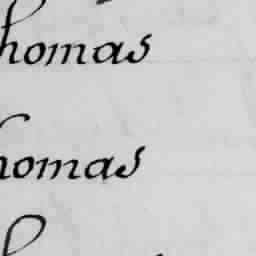 homas
homas
h